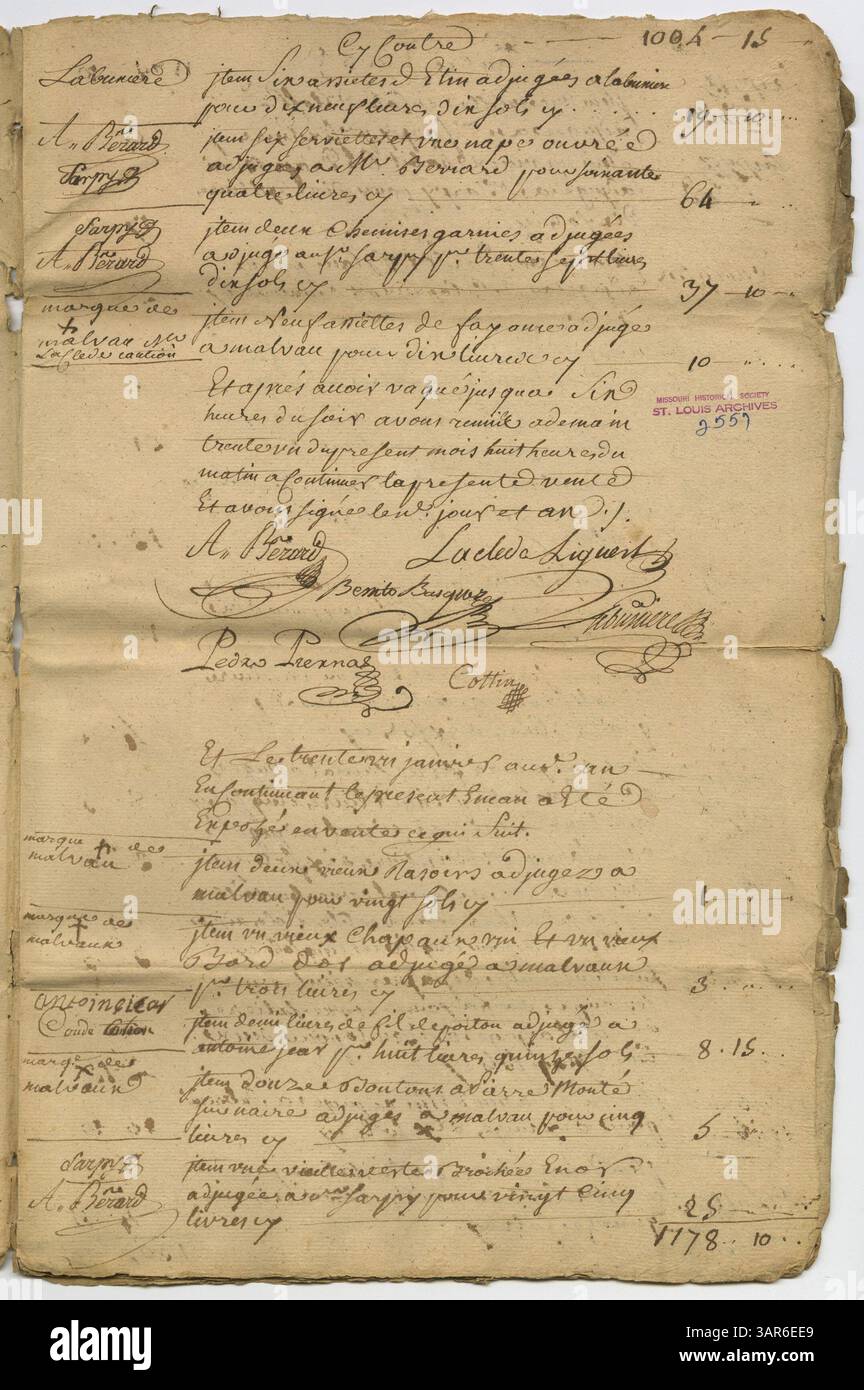 Cy Contre 1004 - 15
Labuniere jtem Six assietes d Etin adjugées a labuniere
pour dix neuf livres dix sols cy 19 - 10
A. Bérard jtem six serviettes et une nape ouvrée
Sarpy adjugées a Mr. Berard pour soixante
quatre livres cy 64
Sarpy jtem deux Chemises garnies adjugées
A. Bérard adjugé au sr. Sarpy pr. trente sept livres
dix sols cy 37 - 10
marque de jtem Neuf assiettes de fayance adjugé
+
malvau Mr a malvau pour dix livres cy 10
LaClede caution
Et aprés avoir vaqué jusqua Six
heures du soir avons remis a demain
trente un du present mois huit heures du
matin a Continuer la presente vente
Et avons signée led. jour et an ./.
A. Bérard Laclede Liguest
Benito Basquez Labuniere
Pedro Piernas Cottin
MISSOURI HISTORICAL SOCIETY
ST. LOUIS ARCHIVES
2557
Et Le trente un janvier aud. an
En Continuant le present Encan a Eté
Exposé en vente ce qui Suit.
marque de
+
malvau jtem deux vieux Rasoirs adjugez a
malvau pour vingt sols cy 1
marque de jtem un vieux Chapau uni Et un vieux
+
malvaux Bord dor adjugé a malvaux
pr. trois livres cy 3
jtem demi livres de fil de poiton adjugé a
antoine jear pr. huit livres quinze sols 8 . 15
marque de jtem douze Boutons a Pierre Monté
x
malvaux adjugés a malvau pour cinq
livres cy 5
Sarpy jtem une vieille veste Brochée En or
A. Bérard adjugée a mr Sarpy pour vingt Cinq
livres cy 25
1178 . . 10
alamy
Image ID: 3AR6EE9
www.alamy.com